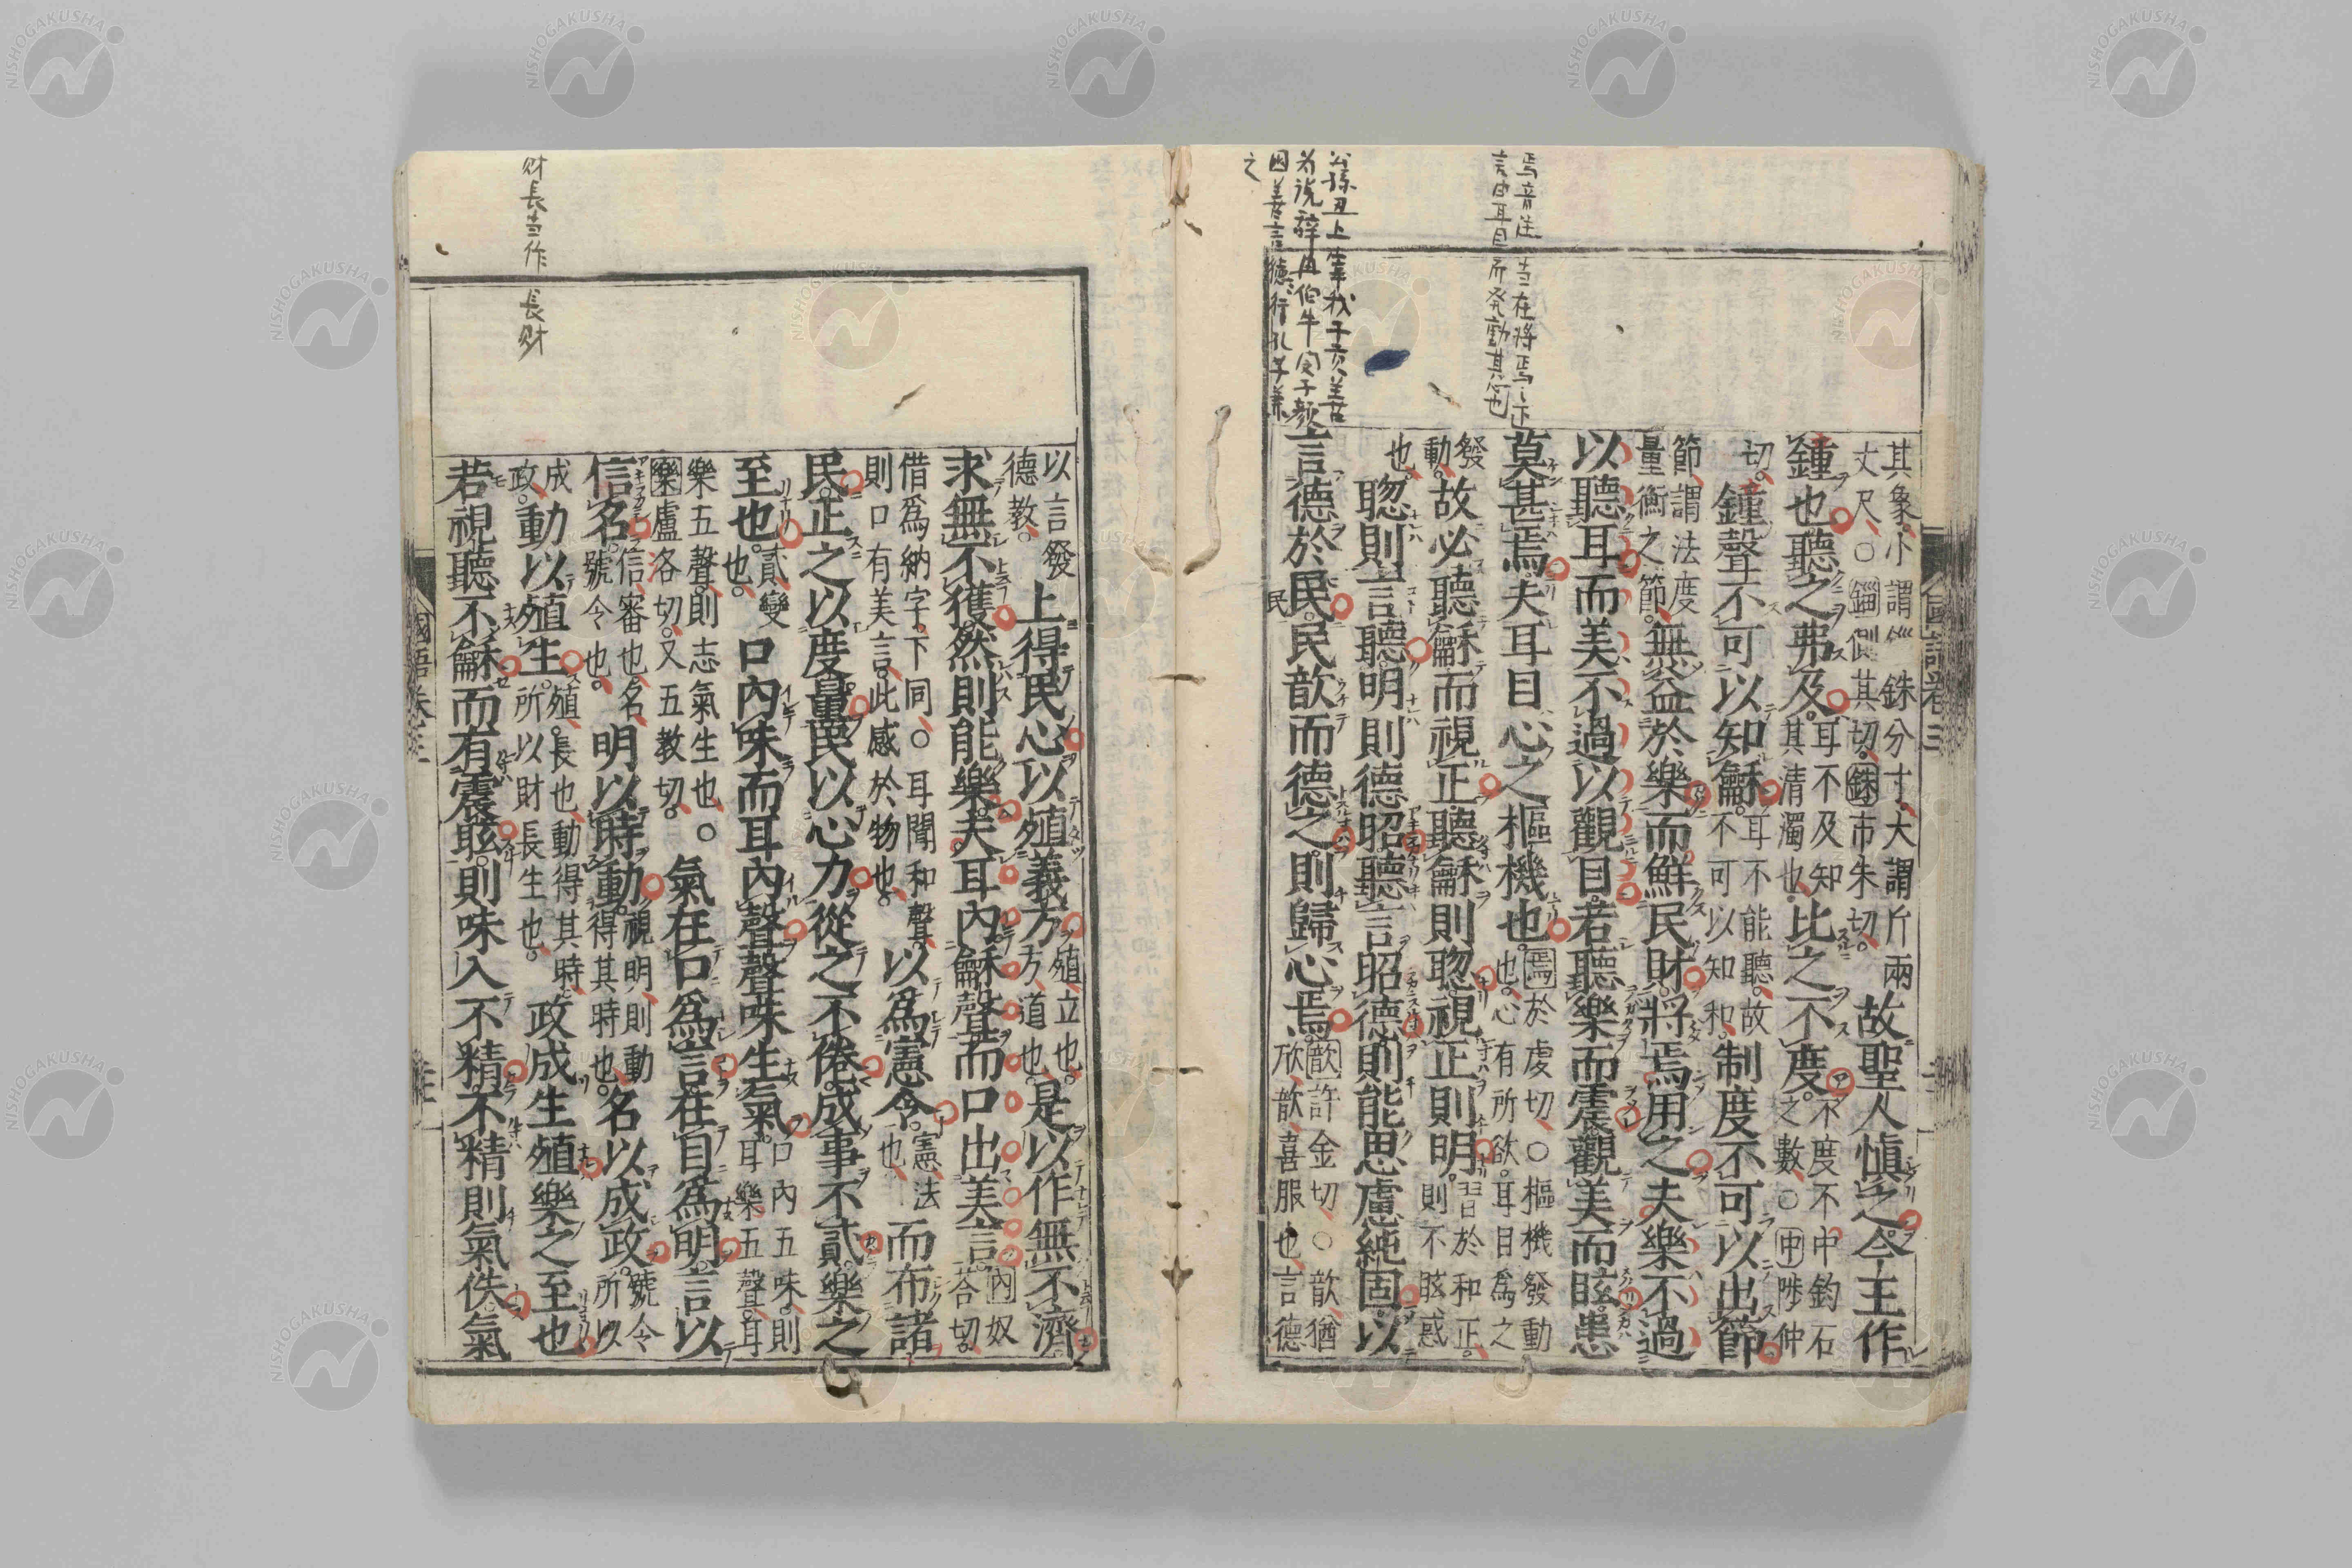 焉音注 当在将焉之下
言由耳目所発動其 也
公孫丑上宰我子貢善
為説辞冉伯牛閔子顔
因善言徳行孔子兼
之
其象。小謂錙銖分寸、大謂斤兩
丈尺、○錙側其切。銖市朱切。
故聖人愼之。今王作
鍾也。聽之弗及。
耳不及知
其清濁也。
比之不度。
不度不中鈞石
之數、○中陟仲
切。
鐘聲不可以知龢。
耳不能聽。故
不可以知和。
制度不可以出節。
節、謂法度
量衡之節。
無益於樂而鮮民財。將焉用之。夫樂不過
以聽耳。而美不過以觀目。若聽樂而震觀美而眩。患
莫甚焉。夫耳目心之樞機也。
焉於虔切、○樞機發動
也。心有所欲。耳目爲之
發
動。
故必聽龢而視正。聽龢則聰。視正則明。
習於和正。
則不眩惑
也。
聰則言聽。明則德昭。聽言昭德。則能思慮純固。以
言德於民。民歆而德之。則歸心焉。
歆許金切、○歆猶
欣歆、喜服也、言德
民
國語卷三
以言發
德教、
上得民心。以殖義方。
殖、立也。
方、道也。
是以作無不濟。
求無不獲。然則能樂。夫耳內龢聲。而口出美言。
內奴
荅切。
借爲納字。下同、○耳聞和聲
則口有美言。此感於物也。
以爲憲令。
憲、法
也、
而布諸
民。正之以度量。民以心力。從之不倦。成事不貳。樂之
至也。
貳、變
也。
口內味而耳內聲。聲味生氣。
口內五味、則
耳樂五聲、耳
樂五聲。則志氣生也、
樂盧各切。又五教切。
○氣在口爲言。在目爲明。言以
信名。
信、審也、名、
號令也。
明以時動。
視明、則動
得其時也。
名以成政。
號令
所以
成
政。
動以殖生。
殖、長也、動得其時、
所以財長生也。
政成生殖。樂之至也
若視聽不龢。而有震眩。則味入不精。不精則氣佚。氣
國語卷三
財長当作 長財